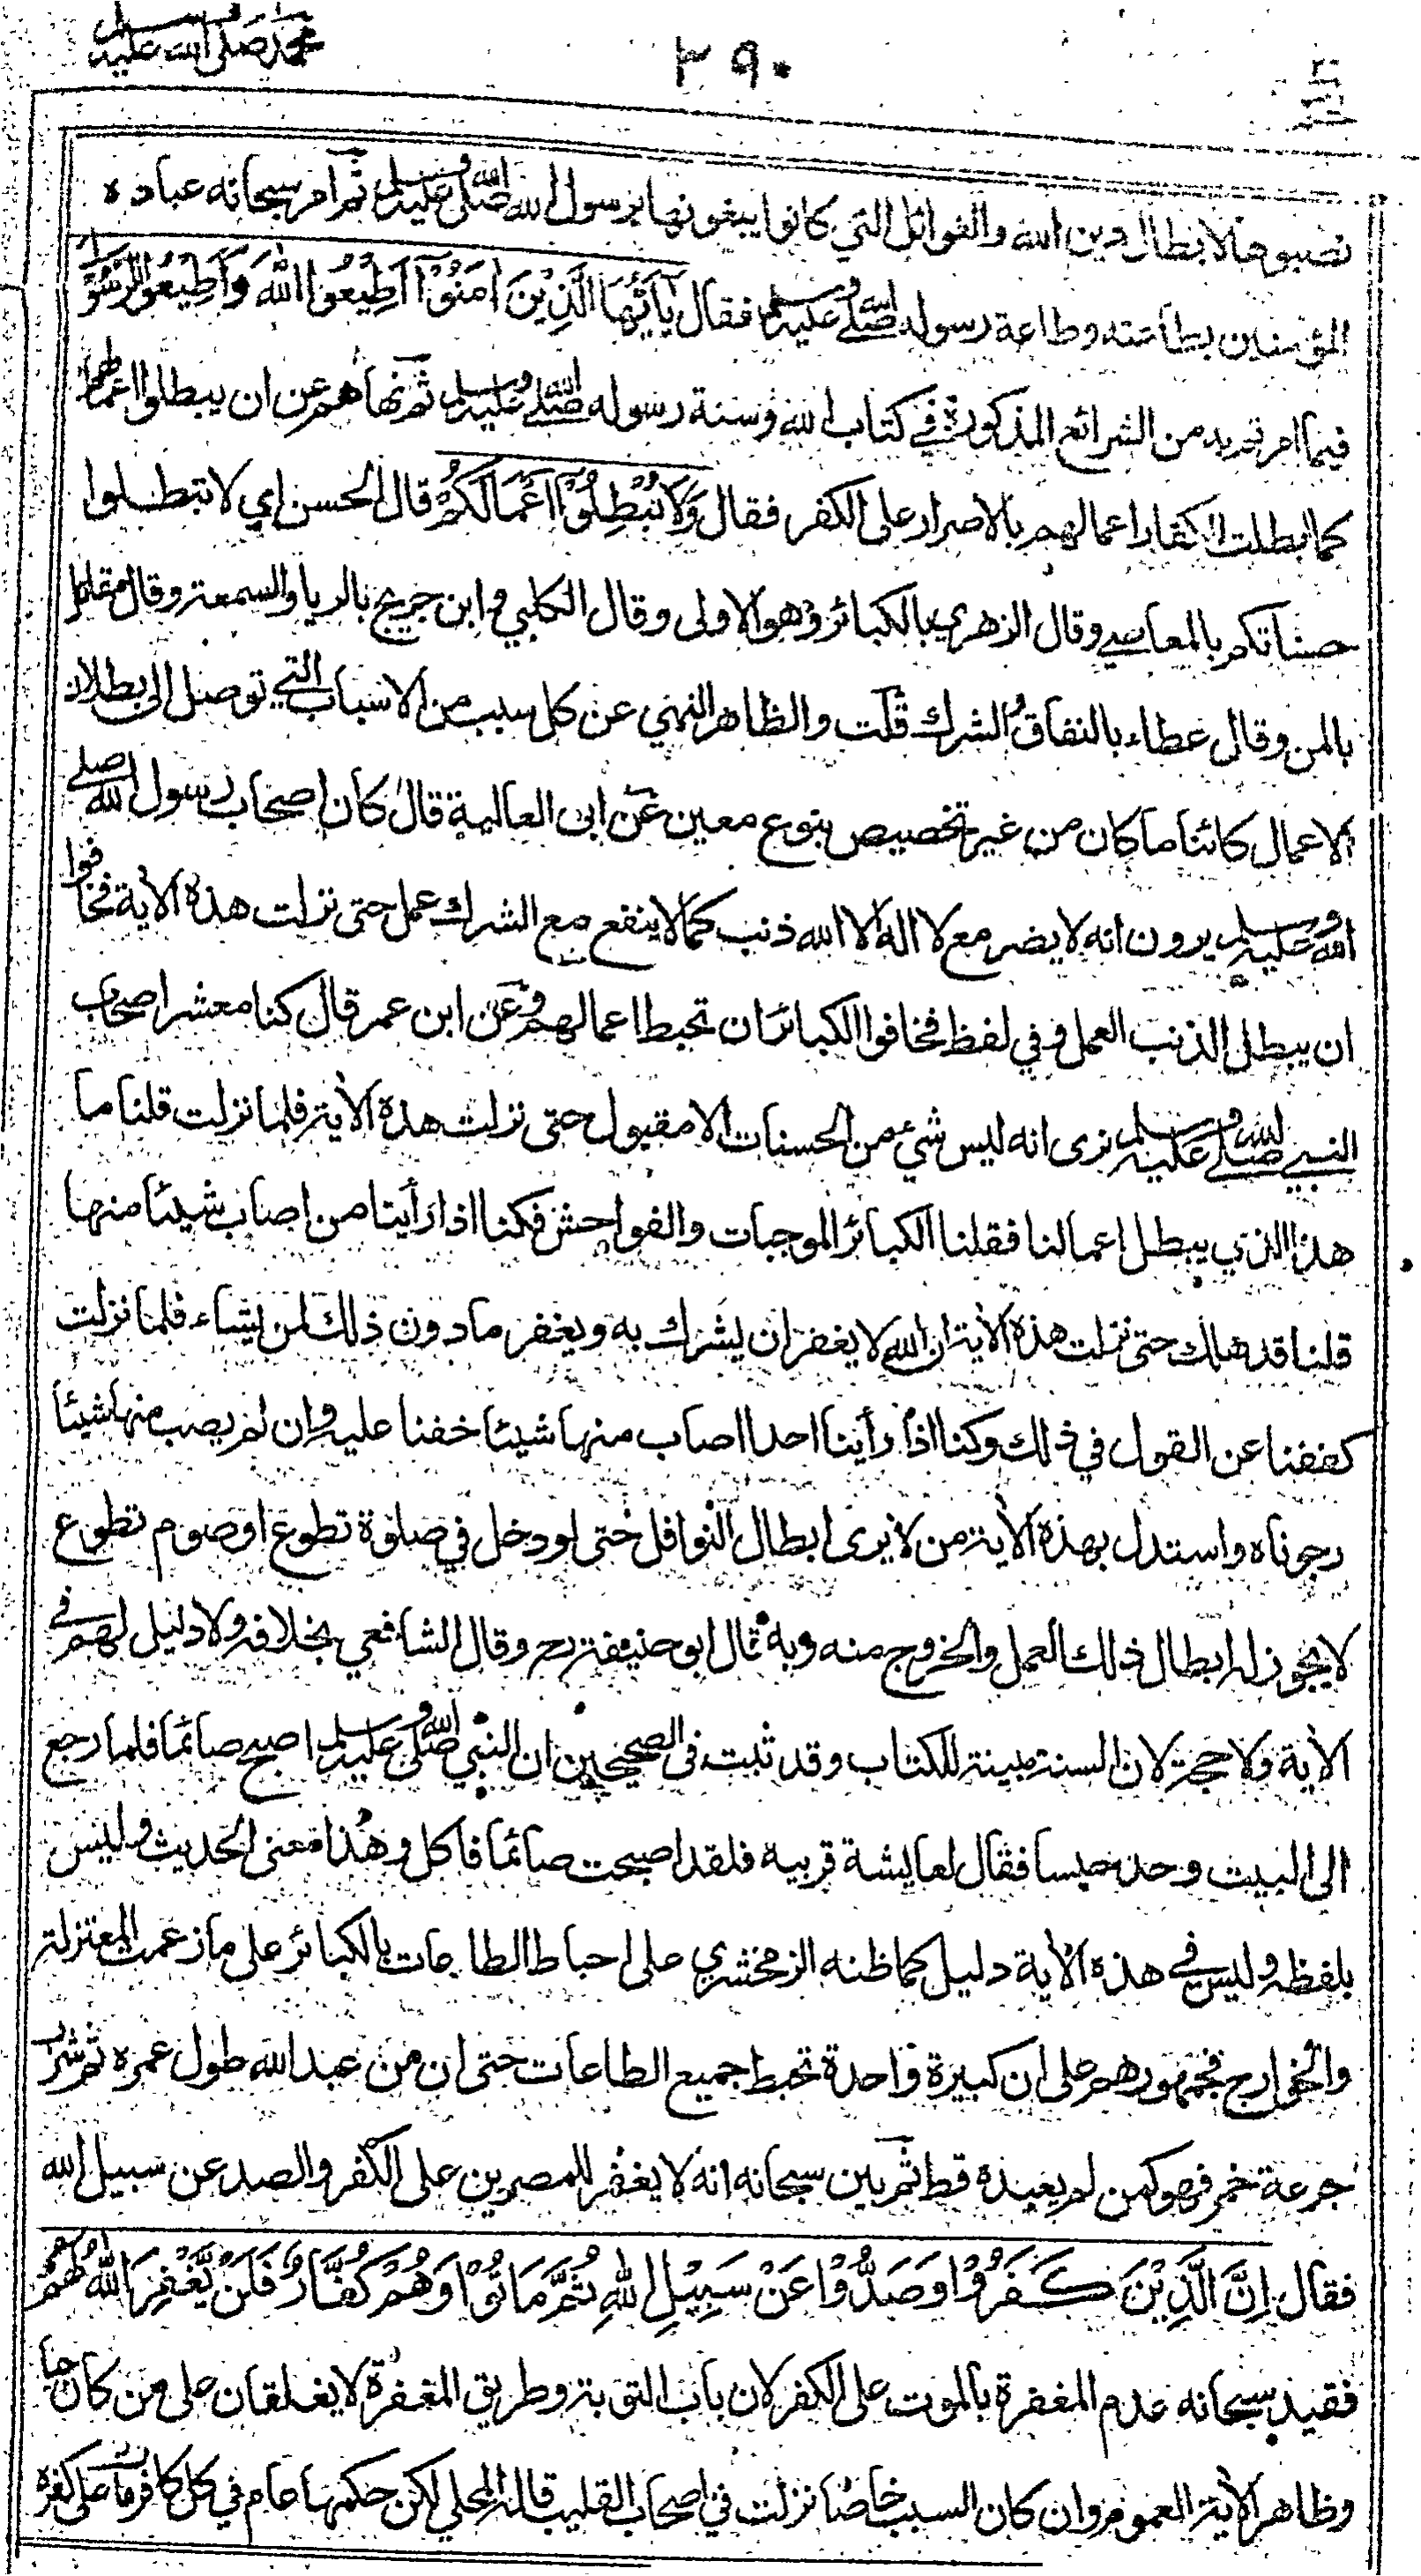 محمد صلى الله عليه وسلم
٢٩٠
نصبوها لابطال دين الله والغوائل التي كانوا يبغونها برسول الله صلى الله عليه وسلم ثم امر سبحانه عباده
المؤمنين بطاعته وطاعة رسوله صلى الله عليه وسلم فقال يٰٓاَيُّهَا الَّذِيْنَ اٰمَنُوْٓا اَطِيْعُوا اللّٰهَ وَاَطِيْعُوا الرَّسُوْلَ
فيما امرتم به من الشرائع المذكورة في كتاب الله وسنة رسوله صلى الله عليه وسلم ثم نهاهم عن ان يبطلوا اعمالهم
كما ابطلت الكفار اعمالهم بالاصرار على الكفر فقال وَلَا تُبْطِلُوْٓا اَعْمَالَكُمْ قال الحسن اي لا تبطلوا
حسناتكم بالمعاصي وقال الزهري بالكبائر وهو الاولى وقال الكلبي وابن جريج بالريا والسمعة وقال مقاتل
بالمن وقال عطاء بالنفاق والشرك قلت والظاهر النهي عن كل سبب من الاسباب التي توصل الى بطلان
الاعمال كائنا ما كان من غير تخصيص بنوع معين عن ابى العالية قال كان اصحاب رسول الله صلى
الله عليه وسلم يرون انه لا يضر مع لا اله الا الله ذنب كما لا ينفع مع الشرك عمل حتى نزلت هذه الاٰية فخافوا
ان يبطل الذنب العمل وفي لفظ فخافوا الكبائر ان تحبط اعمالهم وعن ابن عمر قال كنا معشر اصحاب
النبي صلى الله عليه وسلم نرى انه ليس شيء من الحسنات الا مقبول حتى نزلت هذه الاٰية فلما نزلت قلنا ما
هذا الذي يبطل اعمالنا فقلنا الكبائر الموجبات والفواحش فكنا اذا رأينا من اصاب شيئا منها
قلنا قد هلك حتى نزلت هذه الاٰية ان الله لا يغفر ان يشرك به ويغفر ما دون ذلك لمن يشاء فلما نزلت
كففنا عن القول في ذلك وكنا اذا رأينا احدا اصاب منها شيئا خفنا عليه وان لم يصب منها شيئا
رجوناه واستدل بهذه الاٰية من لا يرى ابطال النوافل حتى لو دخل في صلوة تطوع او صوم تطوع
لا يجوز له ابطال ذلك العمل والخروج منه وبه قال ابو حنيفة رح وقال الشافعي بخلافه ولا دليل لهم في
الاٰية ولا حجة لان السنة مبينة للكتاب وقد ثبت فى الصحيحين ان النبي صلى الله عليه وسلم اصبح صائما فلما رجع
الى البيت وجد حيسا فقال لعايشة قربيه فلقد اصبحت صائما فاكل وهذا معنى الحديث وليس
بلفظه وليس في هذه الاٰية دليل كما ظنه الزمخشري على احباط الطاعات بالكبائر على ما زعمت المعتزلة
والخوارج فجمهورهم على ان كبيرة واحدة تحبط جميع الطاعات حتى ان من عبد الله طول عمره ثم شرب
جرعة خمر فهو كمن لم يعبده قط ثم بين سبحانه انه لا يغفر للمصرين على الكفر والصد عن سبيل الله
فقال اِنَّ الَّذِيْنَ كَفَرُوْا وَصَدُّوْا عَنْ سَبِيْلِ اللّٰهِ ثُمَّ مَاتُوْا وَهُمْ كُفَّارٌ فَلَنْ يَّغْفِرَ اللّٰهُ لَهُمْ
فقيد سبحانه عدم المغفرة بالموت على الكفر لان باب التوبة وطريق المغفرة لا يغلقان على من كان حيا
وظاهر الاٰية العموم وان كان السبب خاصا نزلت في اصحاب القليب قاله المحلي لكن حكمها عام في كل كافر مات على كفره